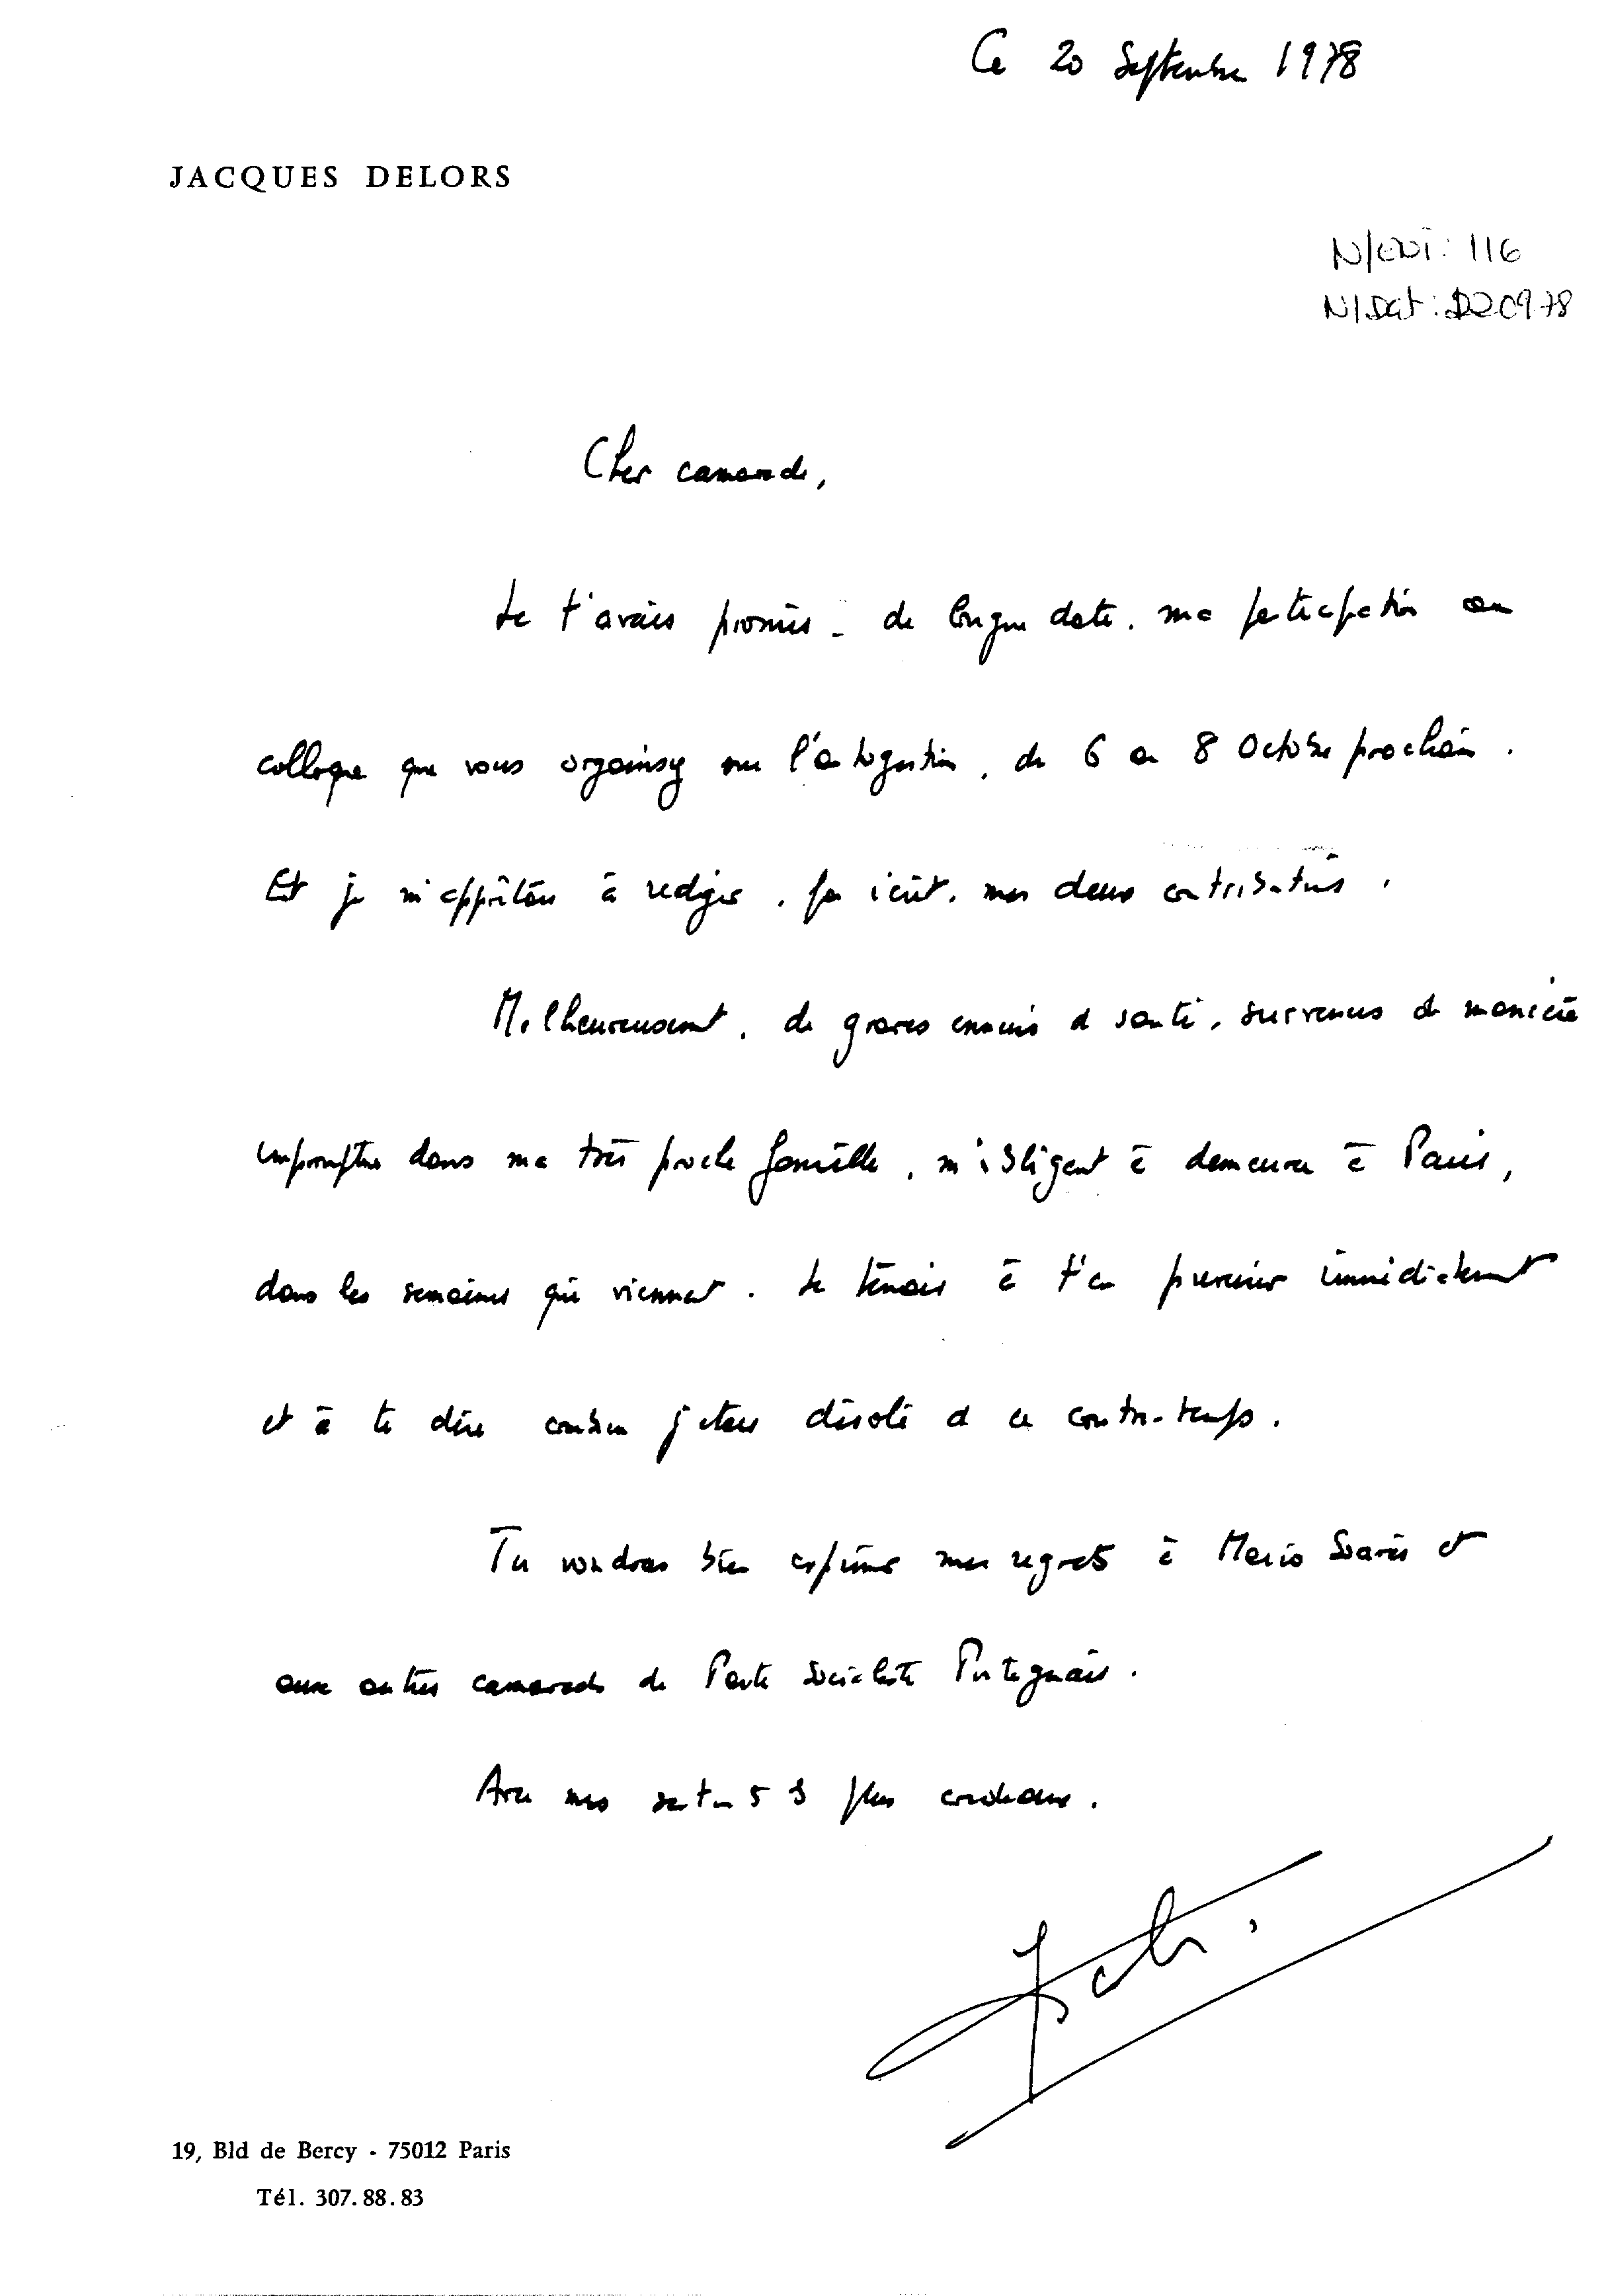 Ce 20 Septembre 1978
JACQUES DELORS
N/ent: 116
N/Dat: 200978
Cher camarade,
Je t'avais promis - de longue date. ma participation au
colloque que vous organisez sur l'autogestion, du 6 au 8 Octobre prochain.
Et je m'apprêtais à rédiger, par écrit, mes deux contributions.
Malheureusement, de graves ennuis de santé, survenus de manière
impromptue dans ma très proche famille, m'obligent à demeurer à Paris,
dans les semaines qui viennent. Je tenais à t'en prévenir immédiatement
et à te dire combien j'étais désolé de ce contre-temps.
Tu voudras bien exprimer mes regrets à Mario Soarès et
aux autres camarades du Parti Socialiste Portugais.
Avec mes sentiments les plus cordiaux.
19, Bld de Bercy - 75012 Paris
Tél. 307.88.83